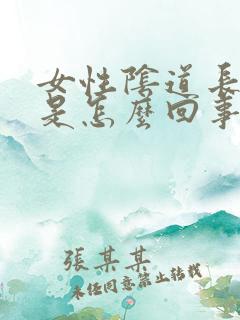 女性陰道長
是怎麼回事
張某某
未经同意禁止转载